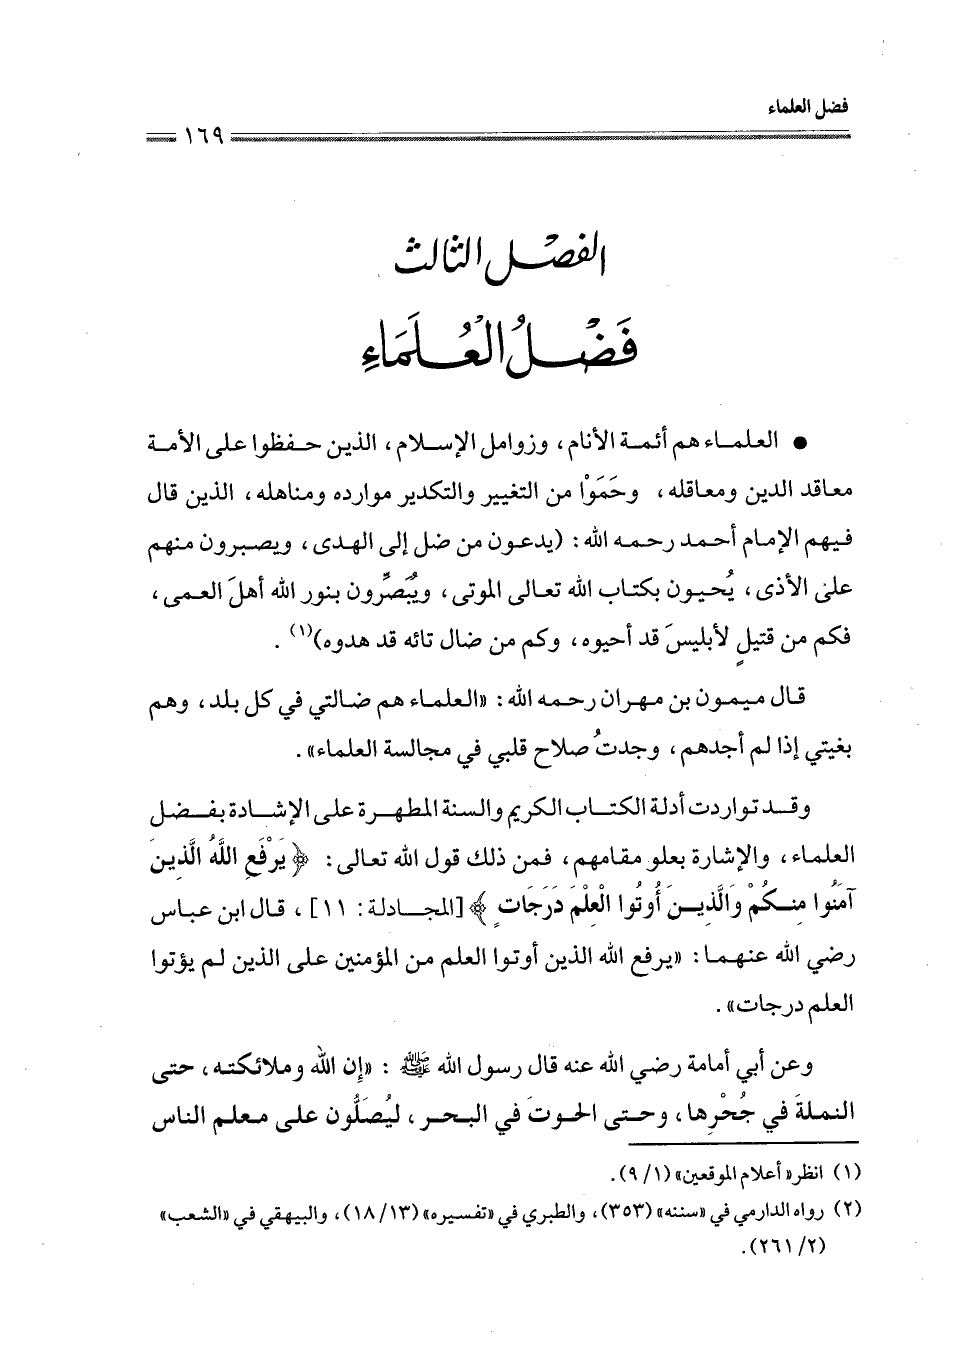 فضل العلماء
١٦٩
الفصل الثالث
فَضْلُ الْعُلَمَاءِ
● العلماء هم أئمة الأنام، وزوامل الإسلام، الذين حفظوا على الأمة
معاقد الدين ومعاقله، وحَمَوْا من التغيير والتكدير موارده ومناهله، الذين قال
فيهم الإمام أحمد رحمه الله: (يدعون من ضل إلى الهدى، ويصبرون منهم
على الأذى، يُحيون بكتاب الله تعالى الموتى، ويُبَصِّرون بنور الله أهلَ العمى،
فكم من قتيلٍ لأبليسَ قد أحيوه، وكم من ضال تائه قد هدوه)(١).
قال ميمون بن مهران رحمه الله: «العلماء هم ضالتي في كل بلد، وهم
بغيتي إذا لم أجدهم، وجدتُ صلاح قلبي في مجالسة العلماء».
وقد تواردت أدلة الكتاب الكريم والسنة المطهرة على الإشادة بفضل
العلماء، والإشارة بعلو مقامهم، فمن ذلك قول الله تعالى: ﴿يَرْفَعِ اللَّهُ الَّذِينَ
آمَنُوا مِنكُمْ وَالَّذِينَ أُوتُوا الْعِلْمَ دَرَجَاتٍ﴾ [المجادلة: ١١]، قال ابن عباس
رضي الله عنهما: «يرفع الله الذين أوتوا العلم من المؤمنين على الذين لم يؤتوا
العلم درجات».
وعن أبي أمامة رضي الله عنه قال رسول الله ﷺ: «إن الله وملائكته، حتى
النملةَ في جُحْرِها، وحتى الحوتَ في البحر، ليُصَلُّون على معلم الناس
(١) انظر «أعلام الموقعين» (٩/١).
(٢) رواه الدارمي في «سننه» (٣٥٣)، والطبري في «تفسيره» (١٨/١٣)، والبيهقي في «الشعب»
(٢٦١/٢).